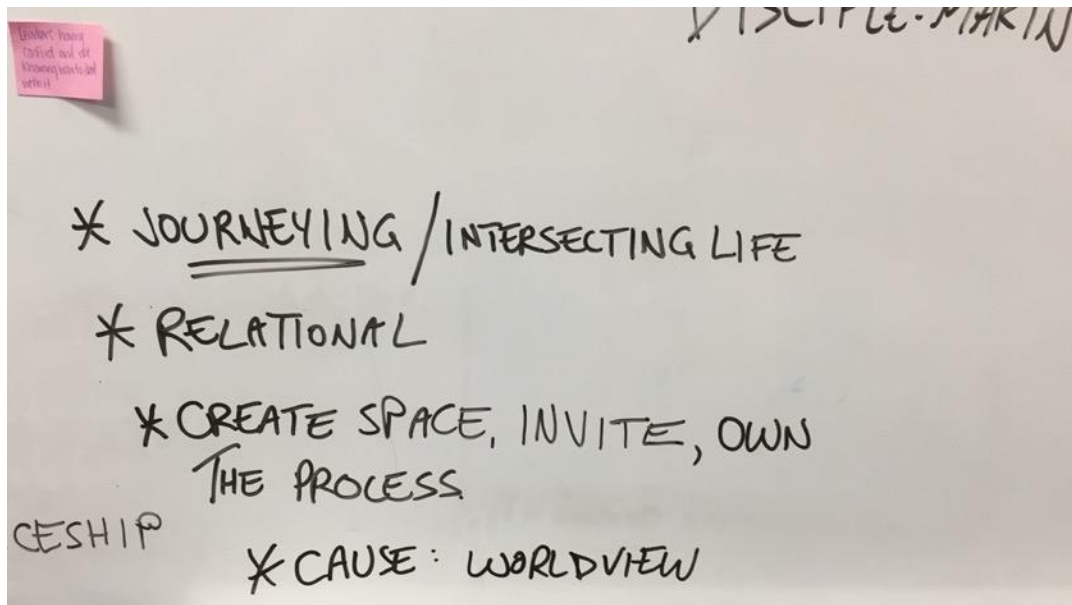 Leaders having
conflict and not
knowing how to deal
with it
DISCIPLE-MAKIN
* JOURNEYING / INTERSECTING LIFE
* RELATIONAL
* CREATE SPACE, INVITE, OWN
THE PROCESS
CESHIP
* CAUSE: WORLDVIEW